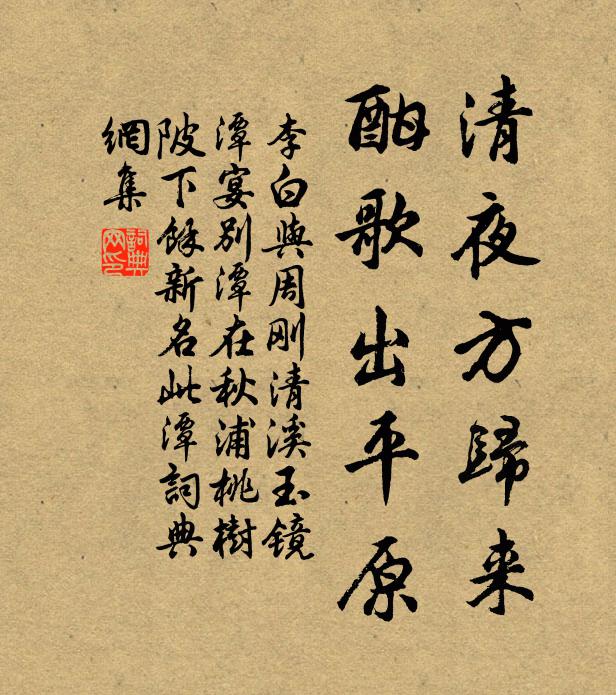 清夜方歸来
酣歌出平原
李白與周刚清溪玉镜
潭宴别潭在秋浦桃樹
陂下餘新名此潭詞典
網集
詞典
网印